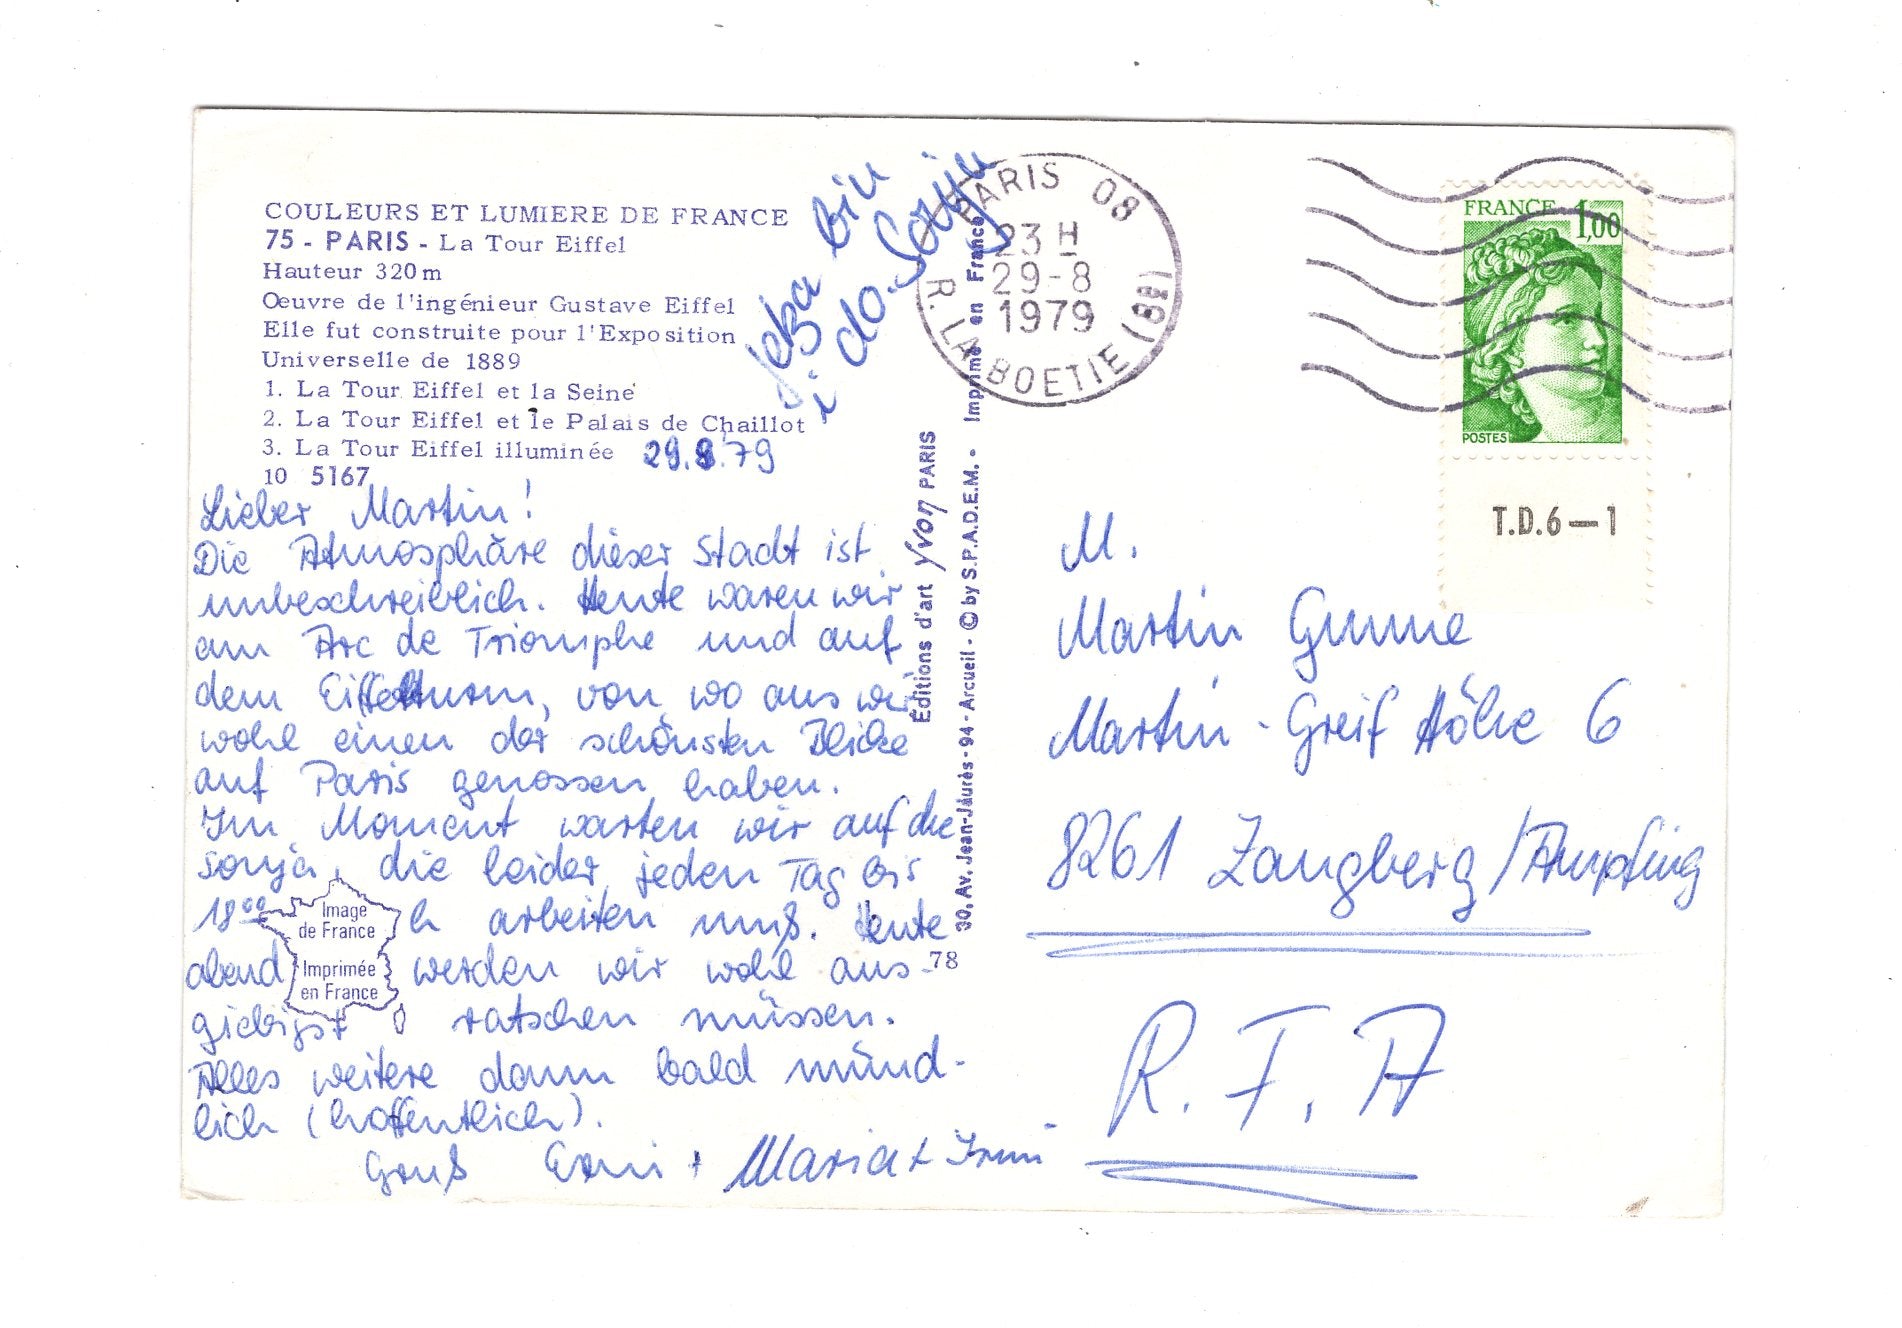 COULEURS ET LUMIERE DE FRANCE
75 - PARIS - La Tour Eiffel
Hauteur 320 m
Œuvre de l'ingénieur Gustave Eiffel
Elle fut construite pour l'Exposition
Universelle de 1889
1. La Tour Eiffel et la Seine
2. La Tour Eiffel et le Palais de Chaillot
3. La Tour Eiffel illuminée
10 5167
29.8.79
Lieber Martin!
Die Atmosphäre dieser Stadt ist
unbeschreiblich. Heute waren wir
am Arc de Triomphe und auf
dem Eiffelturm, von wo aus wir
wohl einen der schönsten Blicke
auf Paris genossen haben.
Im Moment warten wir auf die
Sonja, die leider jeden Tag bis
18⁰⁰ h arbeiten muß. Heute
abend werden wir wohl aus-
giebigst ratschen müssen.
Alles weitere dann bald münd-
lich (hoffentlich).
Gruß + Maria + Irmi
Image
de France
Imprimée
en France
jetza bin
i do. Sonja
Éditions d'art Yvon PARIS
30, Av. Jean-Jaurès - 94 - Arcueil - © by S.P.A.D.E.M. - Imprimé en France
78
PARIS 08
23 H
29-8
1979
R. LA BOETIE (8E)
FRANCE 1,00
POSTES
T.D.6—1
M.
Martin
Martin-Greif Höhe 6
8261 Zangberg/Ampfing
R.F.A